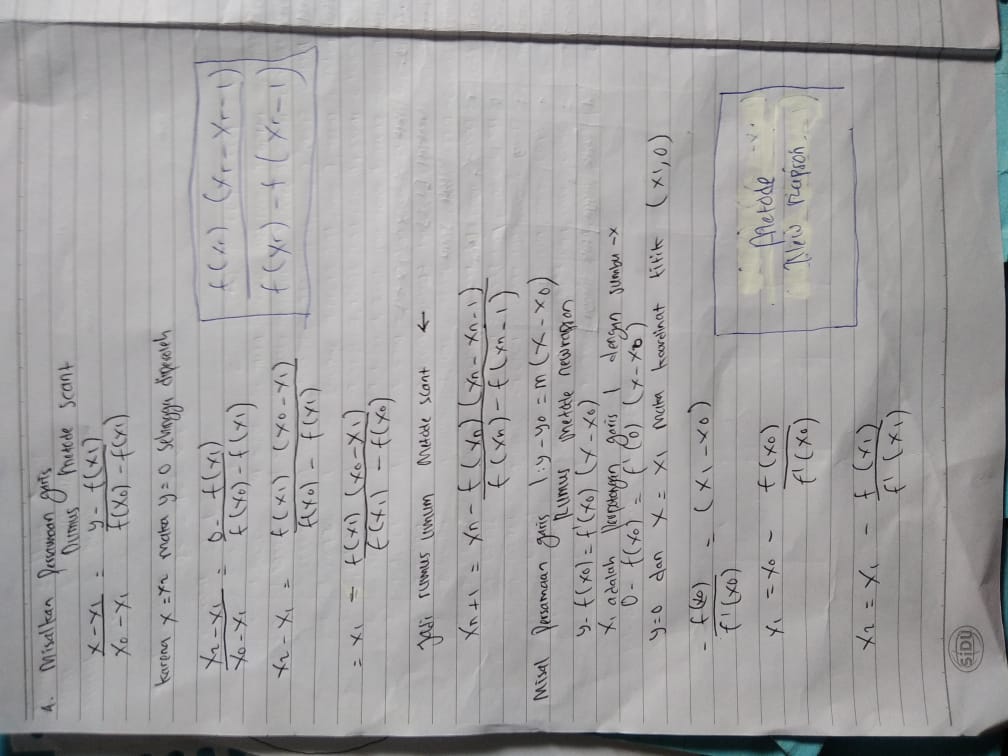 A. Misalkan Persamaan garis
Rumus Metode scant
x - x1 / x0 - x1 = y - f(x1) / f(x0) - f(x1)
karena x = x2 maka y = 0 sehingga diperoleh
x2 - x1 / x0 - x1 = 0 - f(x1) / f(x0) - f(x1)
x2 - x1 = f(x1) (x0 - x1) / f(x0) - f(x1)
f(xr) (xr - xr-1) / f(xr) - f(xr-1)
= x1 - f(x1) (x0 - x1) / f(x1) - f(x0)
Jadi rumus umum Metode scant ←
xn+1 = xn - f(xn) (xn - xn-1) / f(xn) - f(xn-1)
Misal Persamaan garis l : y - y0 = m (x - x0)
Rumus Metode newrapson
y - f(x0) = f'(x0) (x - x0)
x1 adalah Perpotongan garis l dengan sumbu -x
0 - f(x0) = f'(0) (x - x0)
y = 0 dan x = x1 maka koordinat titik (x1, 0)
- f(x0) / f'(x0) = (x1 - x0)
x1 = x0 - f(x0) / f'(x0)
Metode
New Rapson
x2 = x1 - f(x1) / f'(x1)
SiDU